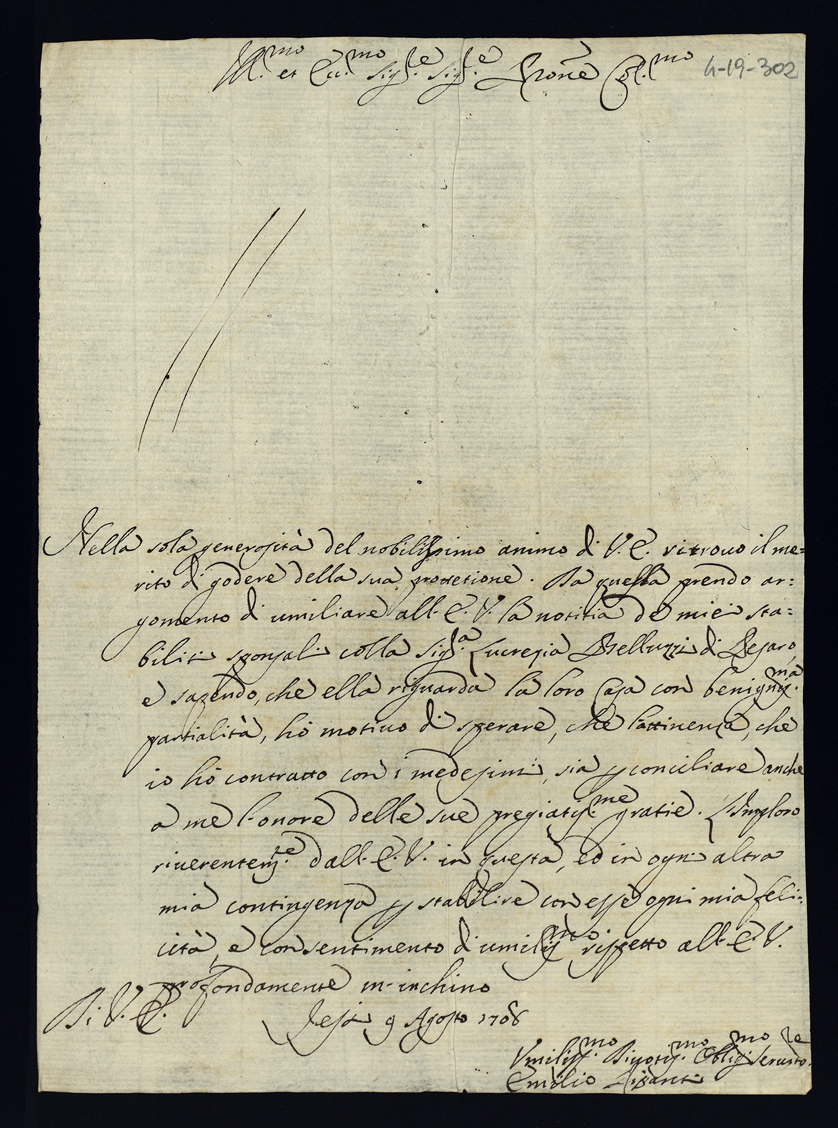 Ill.mo et Ecc.mo Sig.re Sig.re Prone Col.mo
4-19-302
Nella sola generosità del nobilissimo animo di V.E. ritrouo il me=
rito di godere della sua protetione. Da questa prendo ar=
gomento di umiliare all'E.V. la notitia de miei sta=
biliti sponsali colla Sig.a Lucrezia Belluzzi di Pesaro,
e sapendo, che ella riguarda la loro Casa con benigniss.ma
partialità, hò motiuo di sperare, che l'attinenza, che
io hò contratto con i medesimi, sia p conciliare anche
a me l'onore delle sue pregiatis.me gratie. L'imploro
riuerentem.te dall'E.V. in questa, ed in ogni altra
mia contingenza p stabilire con esse ogni mia feli=
cità, e con sentimento di umiliss.mo rispetto all'E.V.
profondamente m'inchino
Di V.E. Jesi 9 Agosto 1708
Vmiliss.mo Diuotis.mo Oblig.mo Seruito.re
Emilio